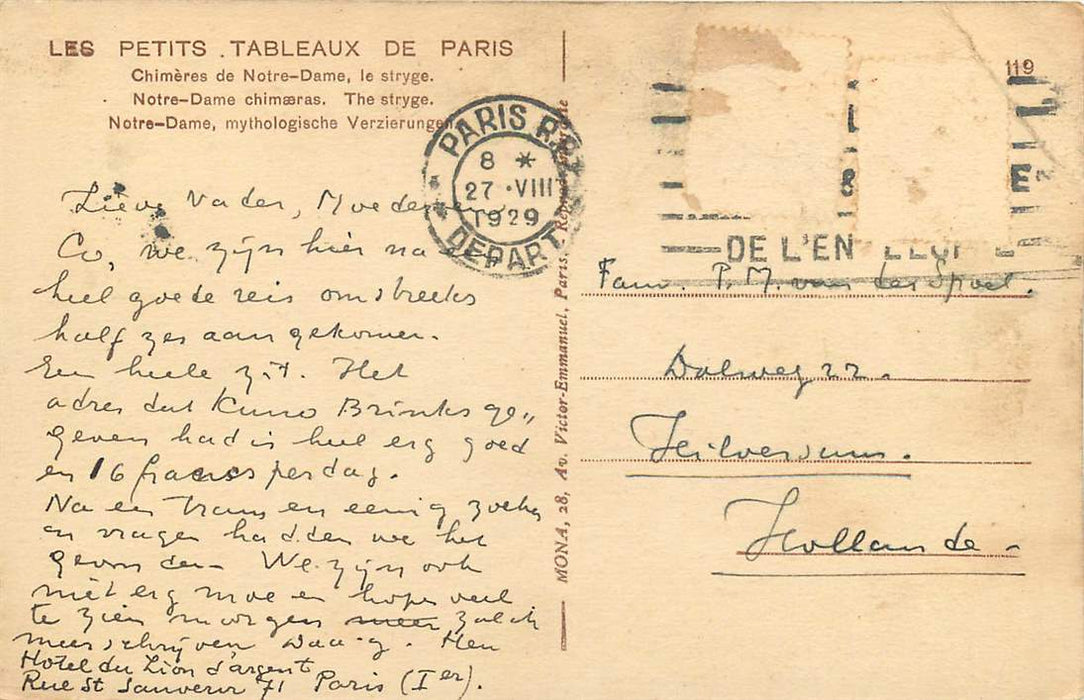 LES PETITS TABLEAUX DE PARIS
Chimères de Notre-Dame, le stryge.
Notre-Dame chimæras. The stryge.
Notre-Dame, mythologische Verzierungen
119
PARIS R.P.
8 *
27 · VIII
1929
DEPART
DE L'EN
Lieve Vader, Moeder en
Co, we zijn hier na een
heel goede reis omstreeks
half zes aangekomen.
Een heele zit. Het
adres dat Kuno Brinks ge„
geven had is heel erg goed
en 16 francs per dag.
Na een tram en eenig zoeken
en vragen hadden we het
gevonden. We zijn ook
niet erg moe en hopen veel
te zien morgen meer zal ik
meer schrijven Daag. Hen
Hotel du Lion d'argent
Rue St Sauveur 71 Paris (Ier).
MONA, 28, Av. Victor-Emmanuel, Paris.
Fam. P. M. van der Spoel.
Dalweg 22.
Hilversum.
Hollande.